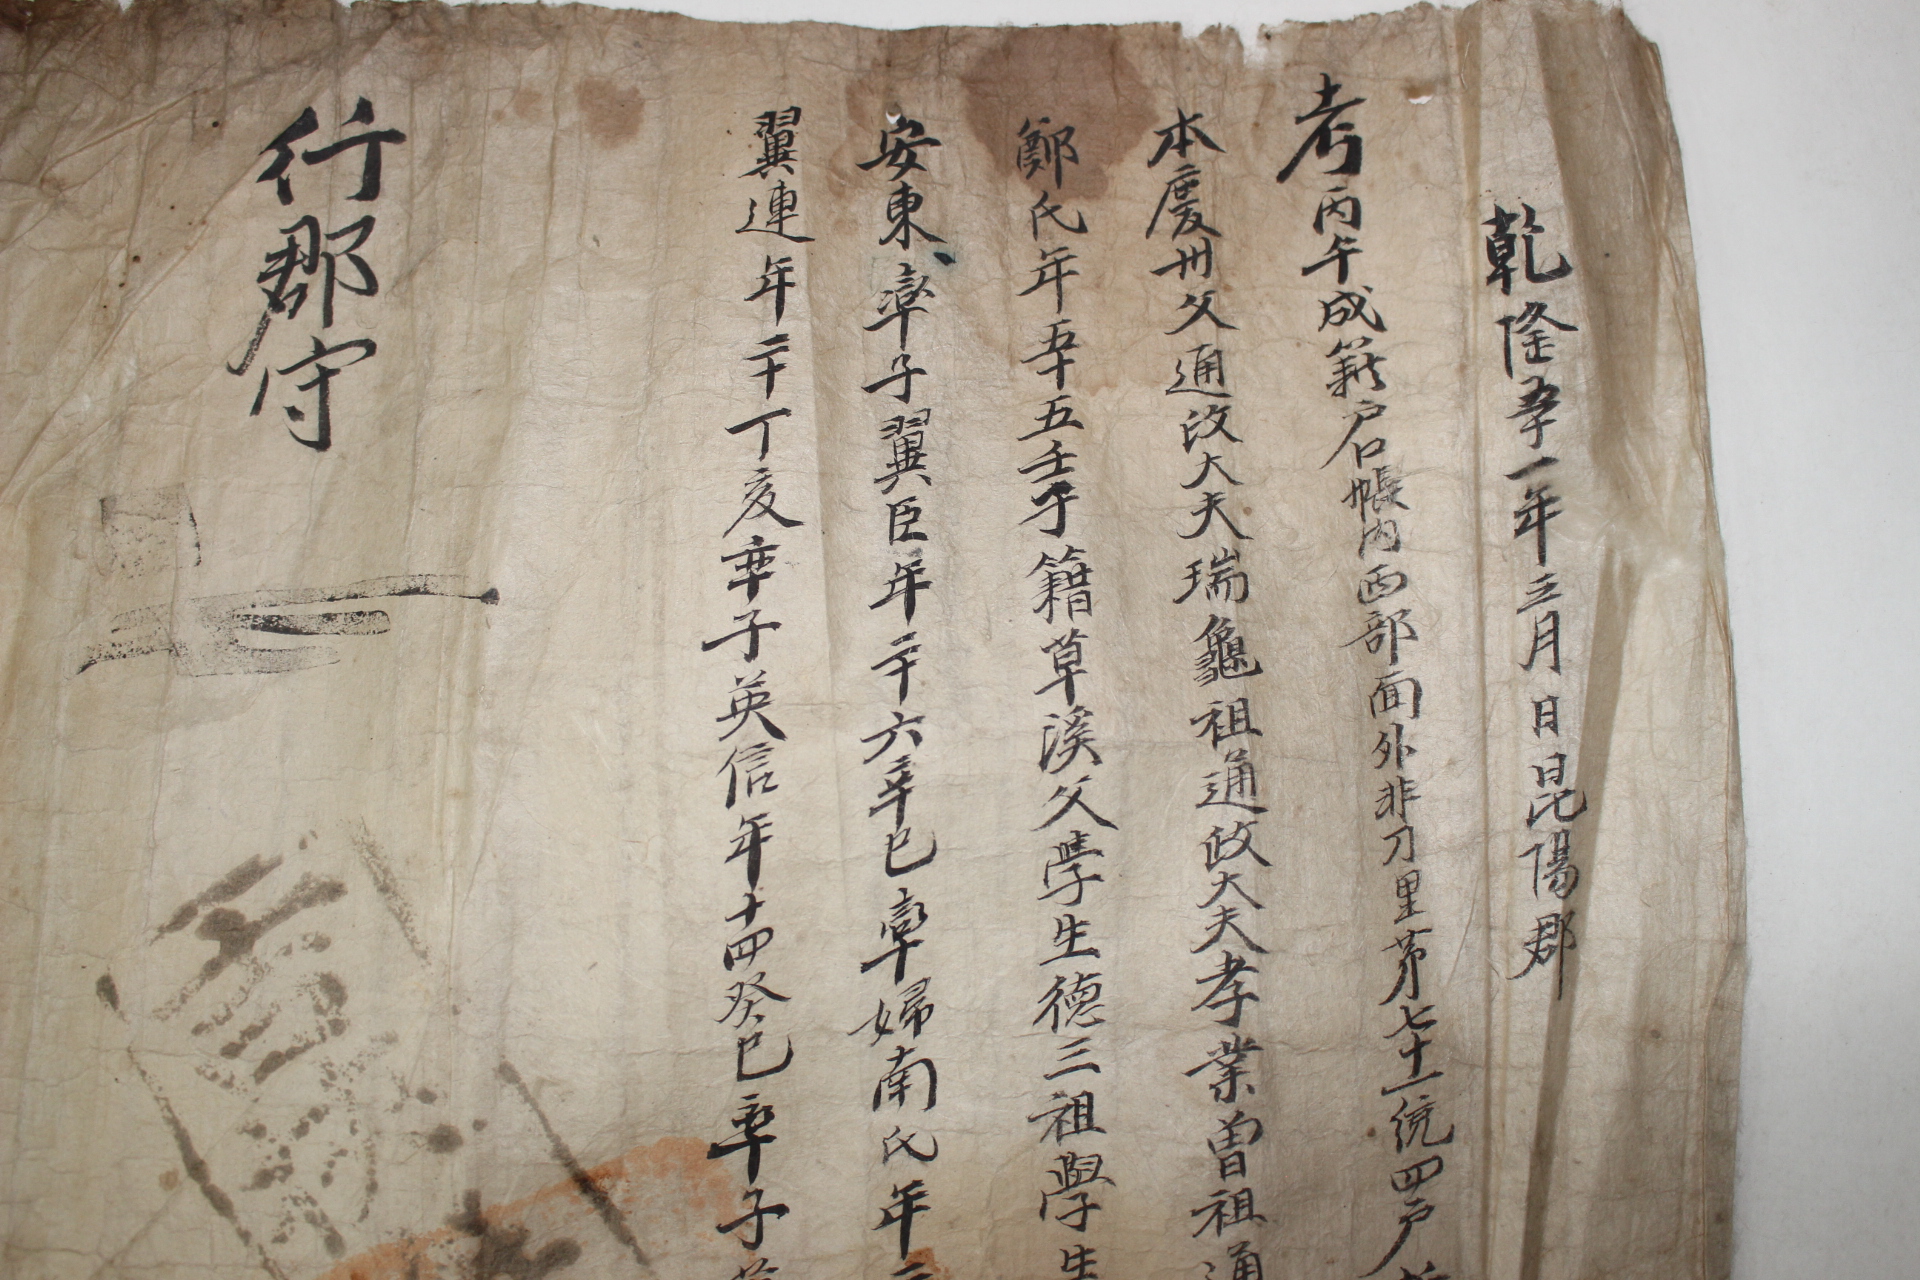 乾隆五十一年三月日昆陽郡
考丙午成籍戶口帳內西部面外非刀里第七十一統四戶
本慶州父通政大夫瑞龜祖通政大夫孝業曾祖通
鄭氏年五十五壬子籍草溪父學生德三祖學生
安東率子翼臣年二十六辛巳率婦南氏年二
翼連年二十丁亥率子英信年十四癸巳率子
行郡守